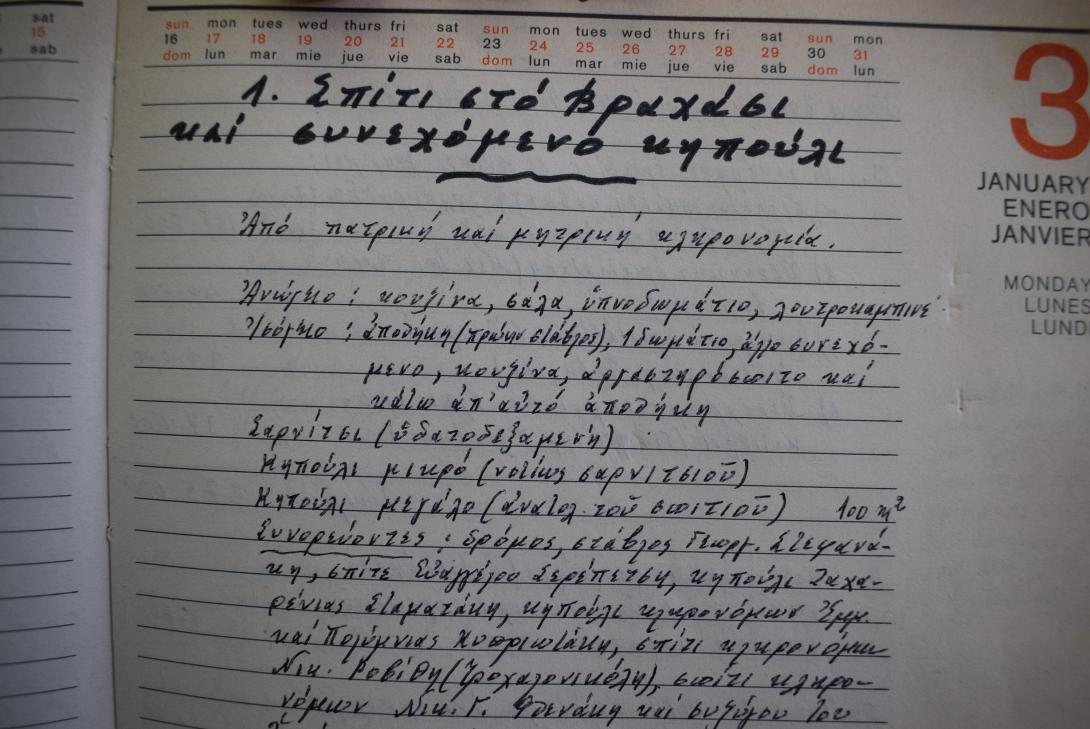 sat
15
sab
sun mon tues wed thurs fri sat sun mon tues wed thurs fri sat sun mon
16 17 18 19 20 21 22 23 24 25 26 27 28 29 30 31
dom lun mar mie jue vie sab dom lun mar mie jue vie sab dom lun
3
JANUARY
ENERO
JANVIER
MONDAY
LUNES
LUND
1. Σπίτι στό Βραχάσι
καί συνεχόμενο κηπούλι
Ἀπό πατρική καί μητρική κληρονομία.
Ἀνώγειο : κουζίνα, σάλα, ὑπνοδωμάτιο, λουτροκαμπινέ
Ἰσόγειο : ἀποθήκη (πρώην στάβλος), 1 δωμάτιο, ἄλλο συνεχό-
μενο, κουζίνα, ἀργαστηρόσπιτο καί
κάτω ἀπ' αὐτό ἀποθήκη
Σαρνίτσι (ὑδατοδεξαμενή)
Κηπούλι μικρό (νοτίως σαρνιτσιοῦ)
Κηπούλι μεγάλο (ἀνατολ. τοῦ σπιτιοῦ) 100 m²
Συνορεύοντες : δρόμος, στάβλος Γεωργ. Στεφανά-
κη, σπίτι Εὐαγγέλου Σερέπετση, κηπούλι Ζαχα-
ρένιας Σταματάκη, κηπούλι κληρονόμων Ἐμμ.
καί Πολύμνιας Κυπριωτάκη, σπίτι κληρονόμων
Νικ. Ροβίθη (Τροχαλονικόλη), σπίτι κληρο-
νόμων Νικ. Γ. Φενάκη καί συζύγου του